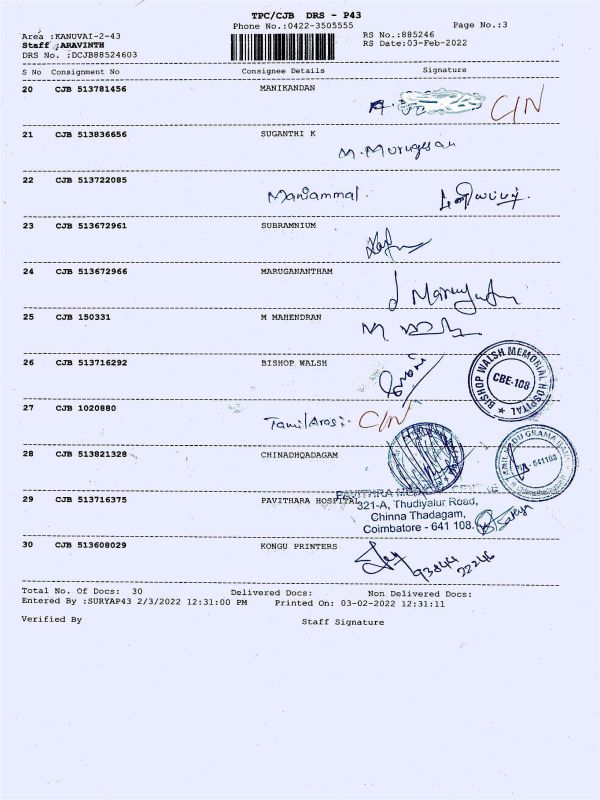 TPC/CJB DRS - P43
Phone No.:0422-3505555
Page No.:3
Area :KANUVAI-2-43
Staff :ARAVINTH
DRS No. :DCJB88524603
RS No.:885246
RS Date:03-Feb-2022
S No Consignment No Consignee Details Signature
20 CJB 513781456 MANIKANDAN
C/N
21 CJB 513836656 SUGANTHI K
M. Murugesan
22 CJB 513722085
Maniammal.
23 CJB 513672961 SUBRAMNIUM
24 CJB 513672966 MARUGANANTHAM
25 CJB 150331 M MAHENDRAN
26 CJB 513716292 BISHOP WALSH
BISHOP WALSH MEMORIAL HOSPITAL
CBE-108
27 CJB 1020880
TamilArasi C/N
28 CJB 513821328 CHINADHQADAGAM
641108
29 CJB 513716375 PAVITHARA HOSPITAL
321-A, Thudiyalur Road,
Chinna Thadagam,
Coimbatore - 641 108.
30 CJB 513608029 KONGU PRINTERS
93644
22246
Total No. Of Docs: 30 Delivered Docs: Non Delivered Docs:
Entered By :SURYAP43 2/3/2022 12:31:00 PM Printed On: 03-02-2022 12:31:11
Verified By Staff Signature